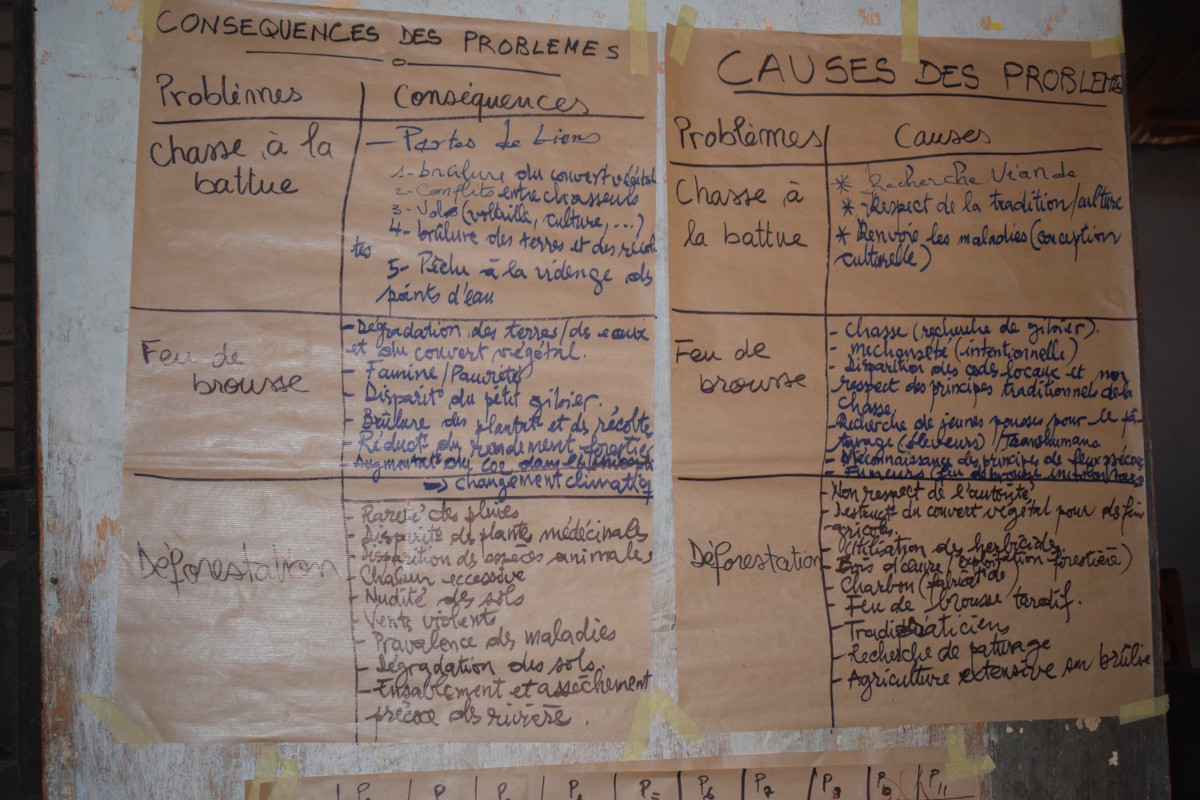 CONSEQUENCES DES PROBLEMES
Problèmes
Conséquences
Chasse à la
battue
- Pertes de biens
1- brûlure du couvert végétal
2- Conflits entre chasseurs
3- Vols (volaille, culture, ...)
4- brûlure des terres et des récol
tes
5- Pêche à la vidange des
points d'eau
Feu de
brousse
- Dégradation des terres/des eaux
et du couvert végétal.
- Famine/Pauvreté
- Disparit° du pétit gibier.
- Brûlure des plants et des récolte
- Réduct° du rendement forestier
- Augmentat° du CO2 dans
=> changement climatiq
Déforestation
- Rareté des pluies
- Disparité de plantes médécinales
- Disparition des espèces animales
- Chaleur eccessive
- Nudité des sols
- Vents violents
- Prévalence des maladies
- Dégradation des sols.
- Ensablement et assèchement
précoce des rivière.
CAUSES DES PROBLEMES
Problèmes
Causes
Chasse à
la battue
* Recherche viande
* - Respect de la tradition/culture
* Renvoie les maladies (conception
culturelle)
Feu de
brousse
- Chasse (recherche de gibier).
- méchanseté (intentionnelle)
- Disparition des codes locaux et non
respect des principes traditionnels de la
chasse
- Recherche de jeunes pousses pour le pâ-
turage (éleveurs)/Transhumans
- Méconnaissance des principes de feux précoces
- Fumeurs (feu de brousse involontaire
Déforestation
- Non respect de l'autorité
- Destruct° du couvert végétal pour des fins
agricoles.
- Utilisation des herbicides
- Bois d'œuvre (exploitation forestière)
- Charbon (fabricat° de)
- Feu de brousse tardif.
- Tradipraticiens
- Recherche de pâturage
- Agriculture extensive sur brûlis
P6 P7 P11